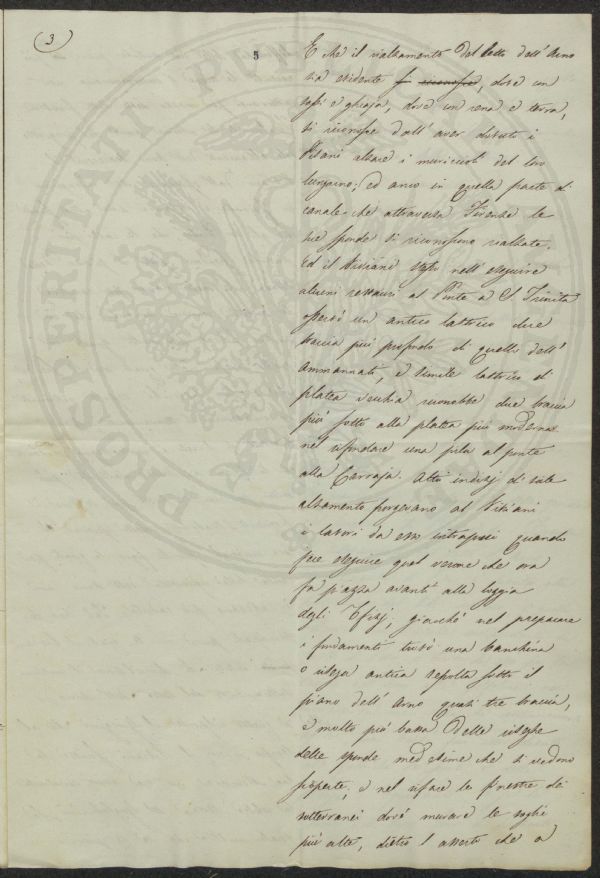 (3)
5
E che il rialzamento del letto dell'Arno
sia evidente si riconosce, dove con
sassi e ghiaja, dove con rena e terra,
si riconosce dall'aver dovuto i
Pisani alzare i muricciuoli del loro
lungarno; ed anco in quella parte di
canale che attraversa Firenze le
sue sponde si riconoscono rialzate.
Ed il Viviani stesso nell'eseguire
alcuni restauri al Ponte a S. Trinita
osservò un antico lastrico due
braccia più profondo di quello dell'
Ammannati, e simile lastrico di
platea vecchia riconobbe due braccia
più sotto alla platea più moderna
nel rifondare una pila al ponte
alla Carraja. Altri indizj di tale
alzamento porgevano al Viviani
i lavori da esso intrapresi quando
fece eseguire quel verone che ora
fa piazza avanti alla loggia
degli Ufizj, giacchè nel preparare
i fondamenti trovò una banchina
o risega antica sepolta sotto il
piano dell'Arno quasi tre braccia,
e molto più bassa delle riseghe
delle sponde medesime che si vedono
scoperte, e nel rifare le finestre dei
sotterranei dovè murare le soglie
più alte, dietro l'asserto che a
PROSPERITATI